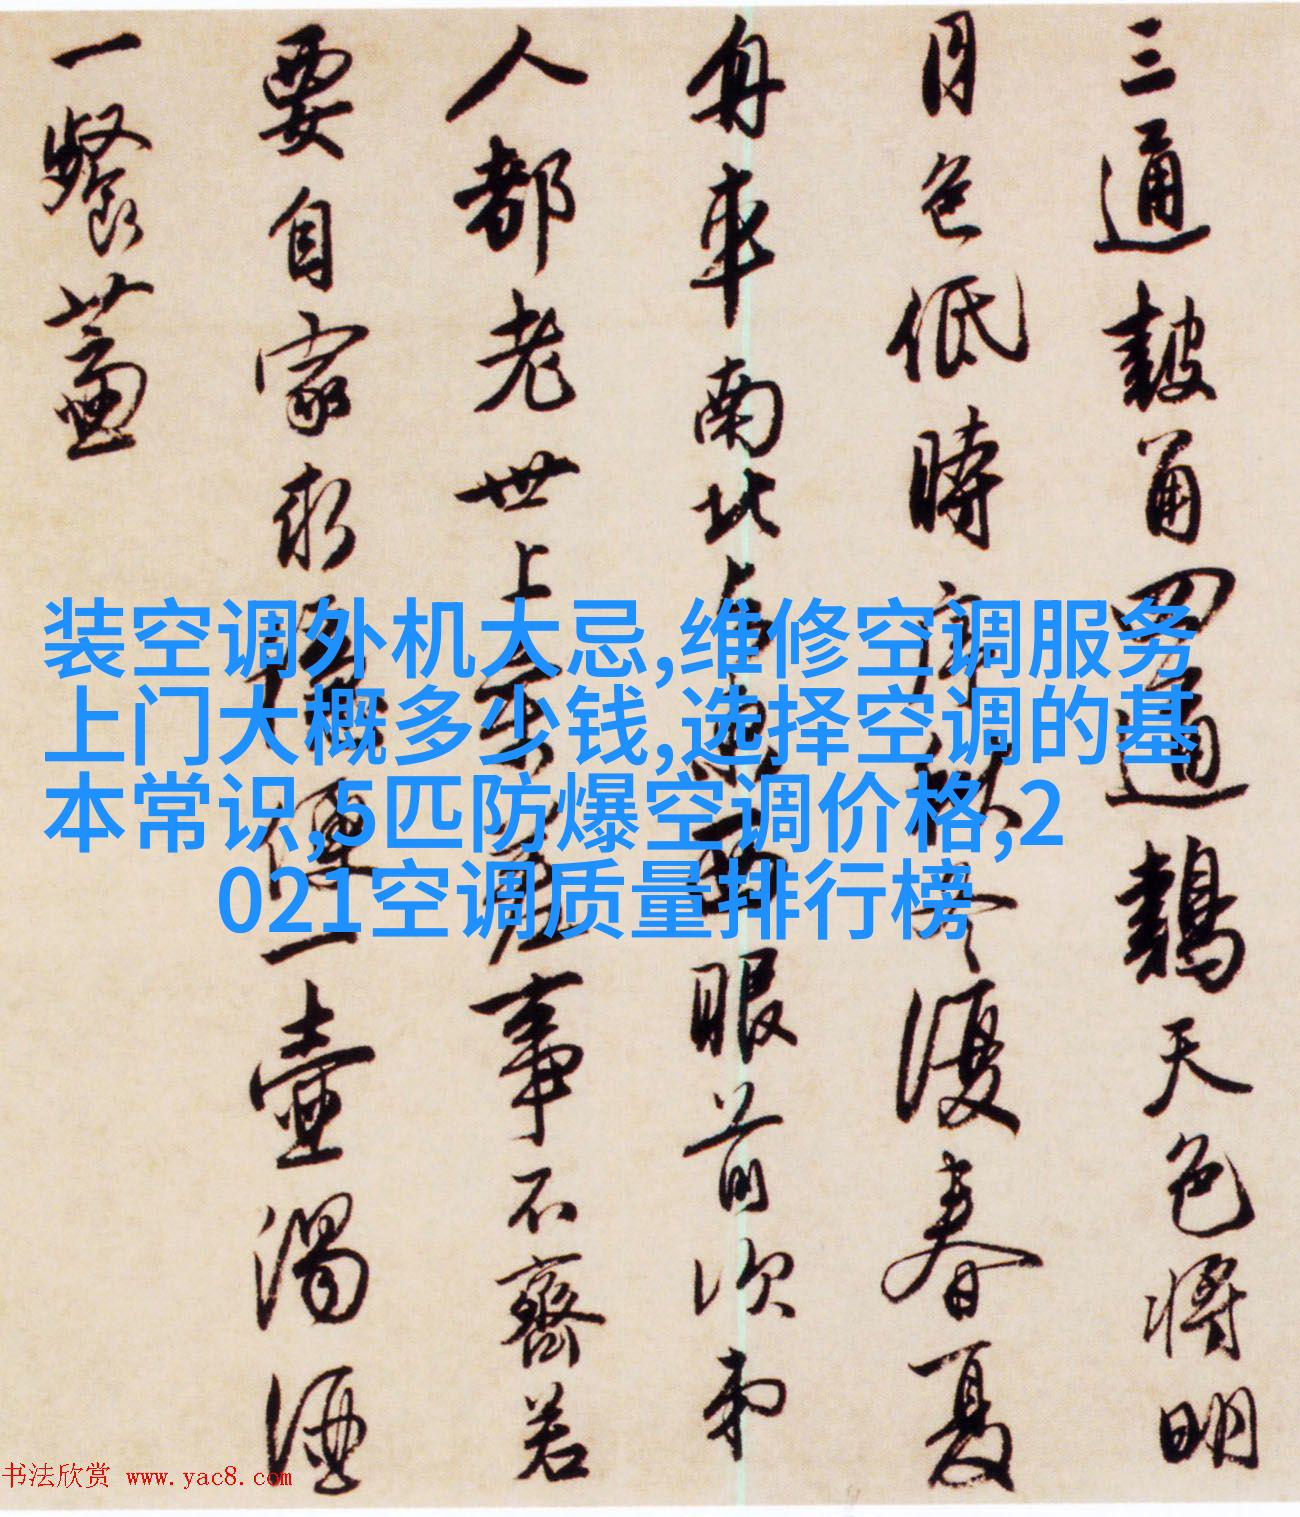 三通皷角四通鷄天色将明
月色低時序秋冬復春夏
舟車南北与東西眼前次第
人都老世上参差事不齊若
要自家求穩便一壷濁酒
一餐虀
装空调外机大忌,维修空调服务
上门大概多少钱,选择空调的基
本常识,5匹防爆空调价格,2
021空调质量排行榜
书法欣赏 www.yac8.com